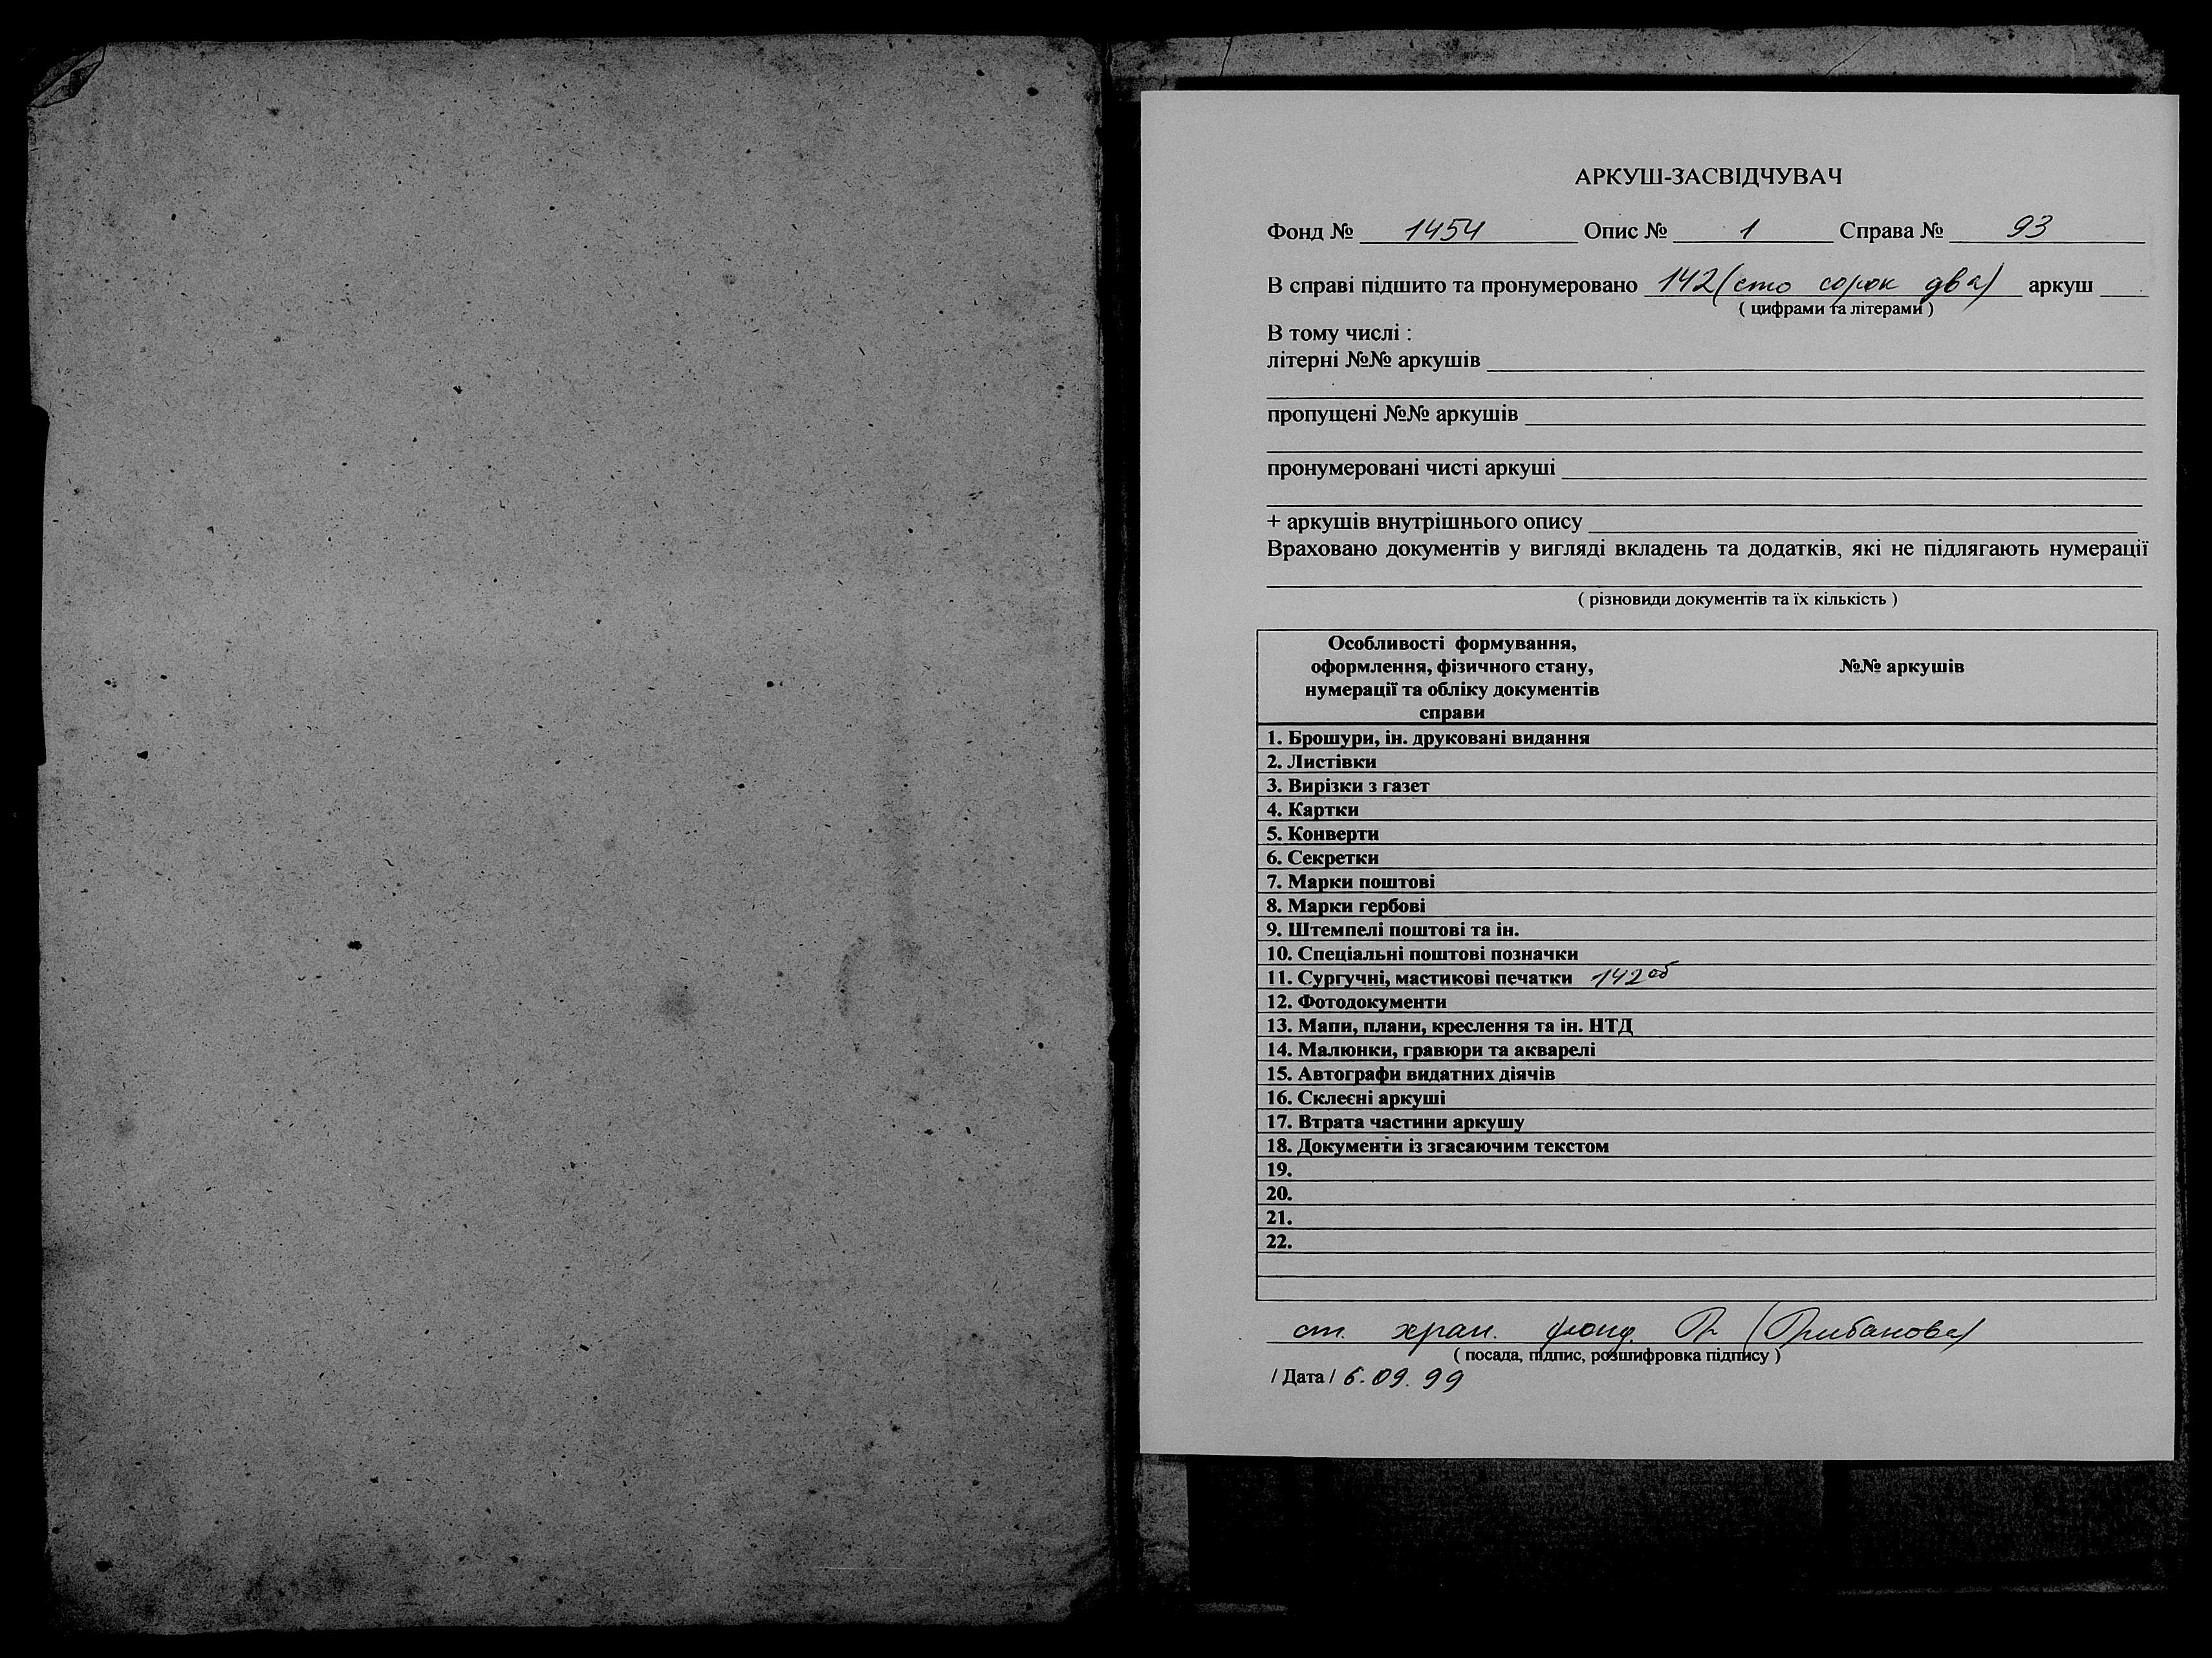 АРКУШ-ЗАСВІДЧУВАЧ
Фонд № 1454 Опис № 1 Справа № 93
В справі підшито та пронумеровано 142 (сто сорок два) аркуш
( цифрами та літерами )
В тому числі :
літерні №№ аркушів
пропущені №№ аркушів
пронумеровані чисті аркуші
+ аркушів внутрішнього опису
Враховано документів у вигляді вкладень та додатків, які не підлягають нумерації
( різновиди документів та їх кількість )
Особливості формування,
оформлення, фізичного стану, №№ аркушів
нумерації та обліку документів
справи
1. Брошури, ін. друковані видання
2. Листівки
3. Вирізки з газет
4. Картки
5. Конверти
6. Секретки
7. Марки поштові
8. Марки гербові
9. Штемпелі поштові та ін.
10. Спеціальні поштові позначки
11. Сургучні, мастикові печатки 142об
12. Фотодокументи
13. Мапи, плани, креслення та ін. НТД
14. Малюнки, гравюри та акварелі
15. Автографи видатних діячів
16. Склеєні аркуші
17. Втрата частини аркушу
18. Документи із згасаючим текстом
19.
20.
21.
22.
ст. хран. фонд.
( посада, підпис, розшифровка підпису )
/ Дата / 6.09.99